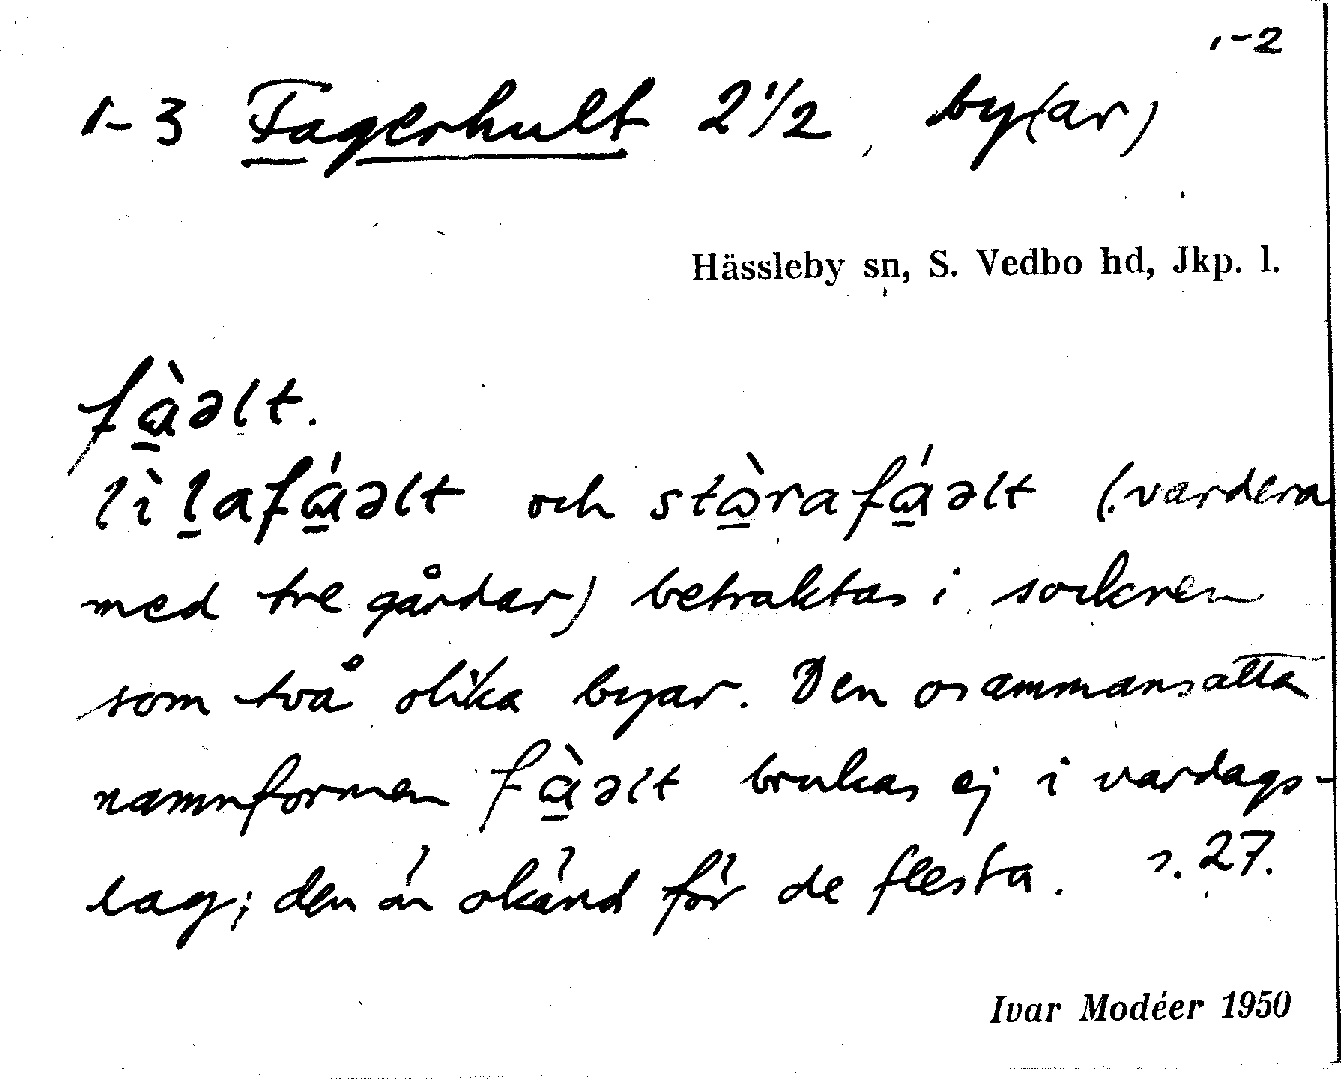 1-2
1-3 Fagerhult 2 1/2, by(ar)
Hässleby sn, S. Vedbo hd, Jkp. l.
fàəlt.
lìlafáəlt och stòrafáəlt (vardera
med tre gårdar) betraktas i socknen
som två olika byar. Den osammansatta
namnformen fàəlt brukas ej i vardags-
lag; den är okänd för de flesta. s. 27.
Ivar Modéer 1950